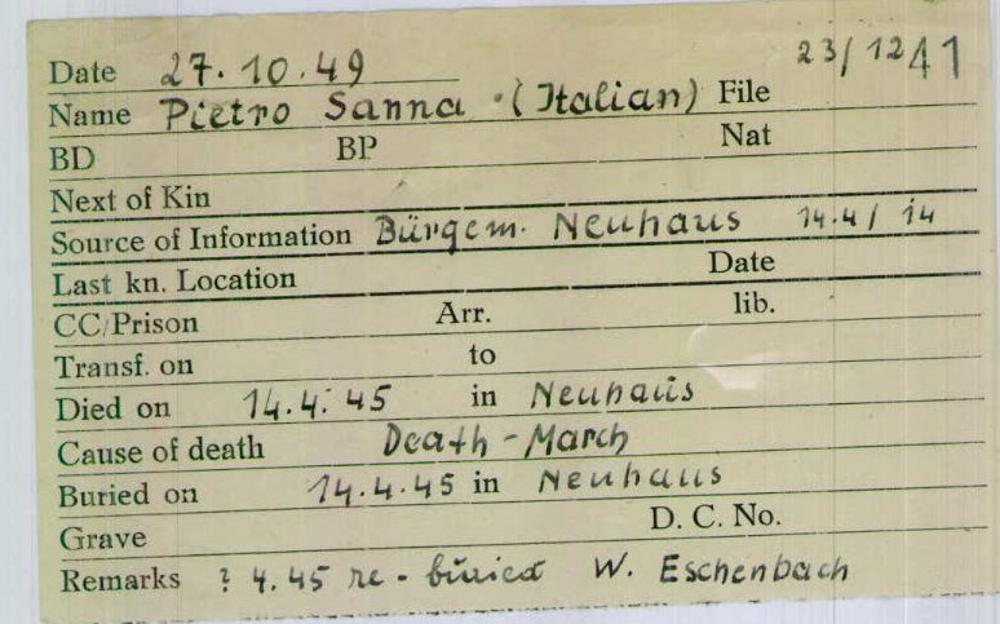 23/1241
Date 27.10.49
Name Pietro Sanna (Italian) File
BD BP Nat
Next of Kin
Source of Information Bürgem. Neuhaus 14.4/14
Last kn. Location Date
CC/Prison Arr. lib.
Transf. on to
Died on 14.4.45 in Neuhaus
Cause of death Death-March
Buried on 14.4.45 in Neuhaus
Grave D. C. No.
Remarks ? 4.45 re-buried W. Eschenbach